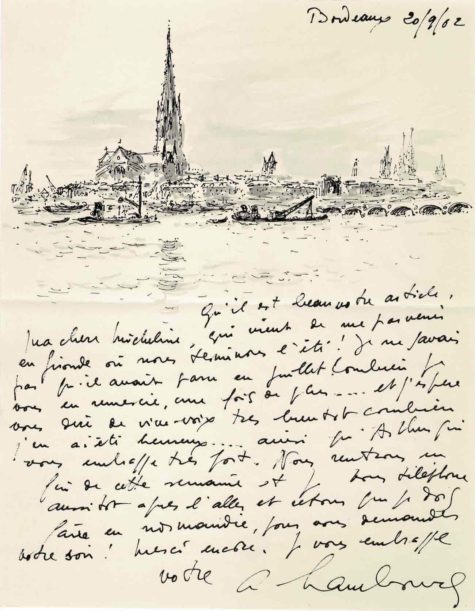 Bordeaux 20/9/02
Qu'il est beau votre article,
ma chère Micheline, qui vient de me parvenir
en Gironde où nous terminons l'été! Je ne savais
pas qu'il avait paru en juillet Combien je
vous en remercie, une fois de plus.... et j'espère
vous dire de vive-voix très bientôt combien
j'en ai été heureux.... ainsi qu'Arthur qui
vous embrasse très fort. Nous rentrons en
fin de cette semaine et je vous téléphone
aussitôt après l'aller et retour que je dois
faire en normandie, pour vous demander
votre soir! merci encore. Je vous embrasse
votre A Hambourg